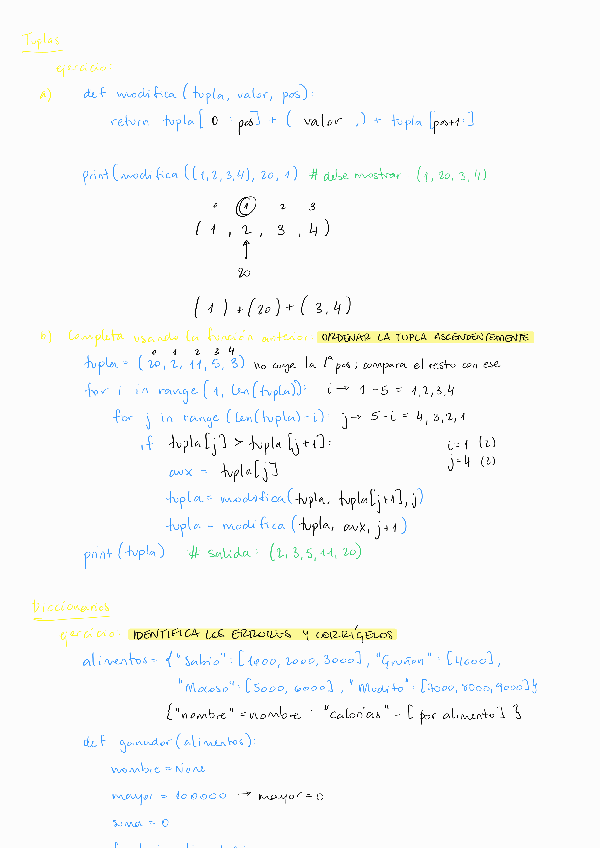 Tuplas
ejercicio:
a) def modifica (tupla, valor, pos):
return tupla[ 0 : pos] + ( valor ,) + tupla [pos+1:]
print(modifica((1,2,3,4), 20, 1) # debe mostrar (1,20,3,4)
0 1 2 3
( 1 , 2 , 3 , 4 )
20
( 1 ) + (20) + ( 3, 4 )
b) Completa usando la función anterior. ORDENAR LA TUPLA ASCENDENTEMENTE
0 1 2 3 4
tupla = (20, 2, 11, 5, 3) no coge la 1ª pos; compara el resto con ese
for i in range (1, len(tupla)): i → 1 - 5 = 1,2,3,4
for j in range (len(tupla)-i): j → 5-i = 4,3,2,1
if tupla[j] > tupla[j+1]: i=1 (2)
aux = tupla[j] j=4 (2)
tupla = modifica(tupla, tupla[j+1], j)
tupla = modifica (tupla, aux, j+1)
print (tupla) # salida: (2,3,5,11,20)
Diccionarios
ejercicio: IDENTIFICA LOS ERRORES Y CORRÍGELOS
alimentos = {"Sabio": [1000, 2000, 3000], "Gruñon": [4000],
"Mocoso": [5000, 6000], "Mudito": [7000, 8000, 9000]}
{"nombre" = nombre : "calorías" = [ por alimento ] }
def ganador (alimentos):
nombre = None
mayor = 100000 → mayor = 0
suma = 0